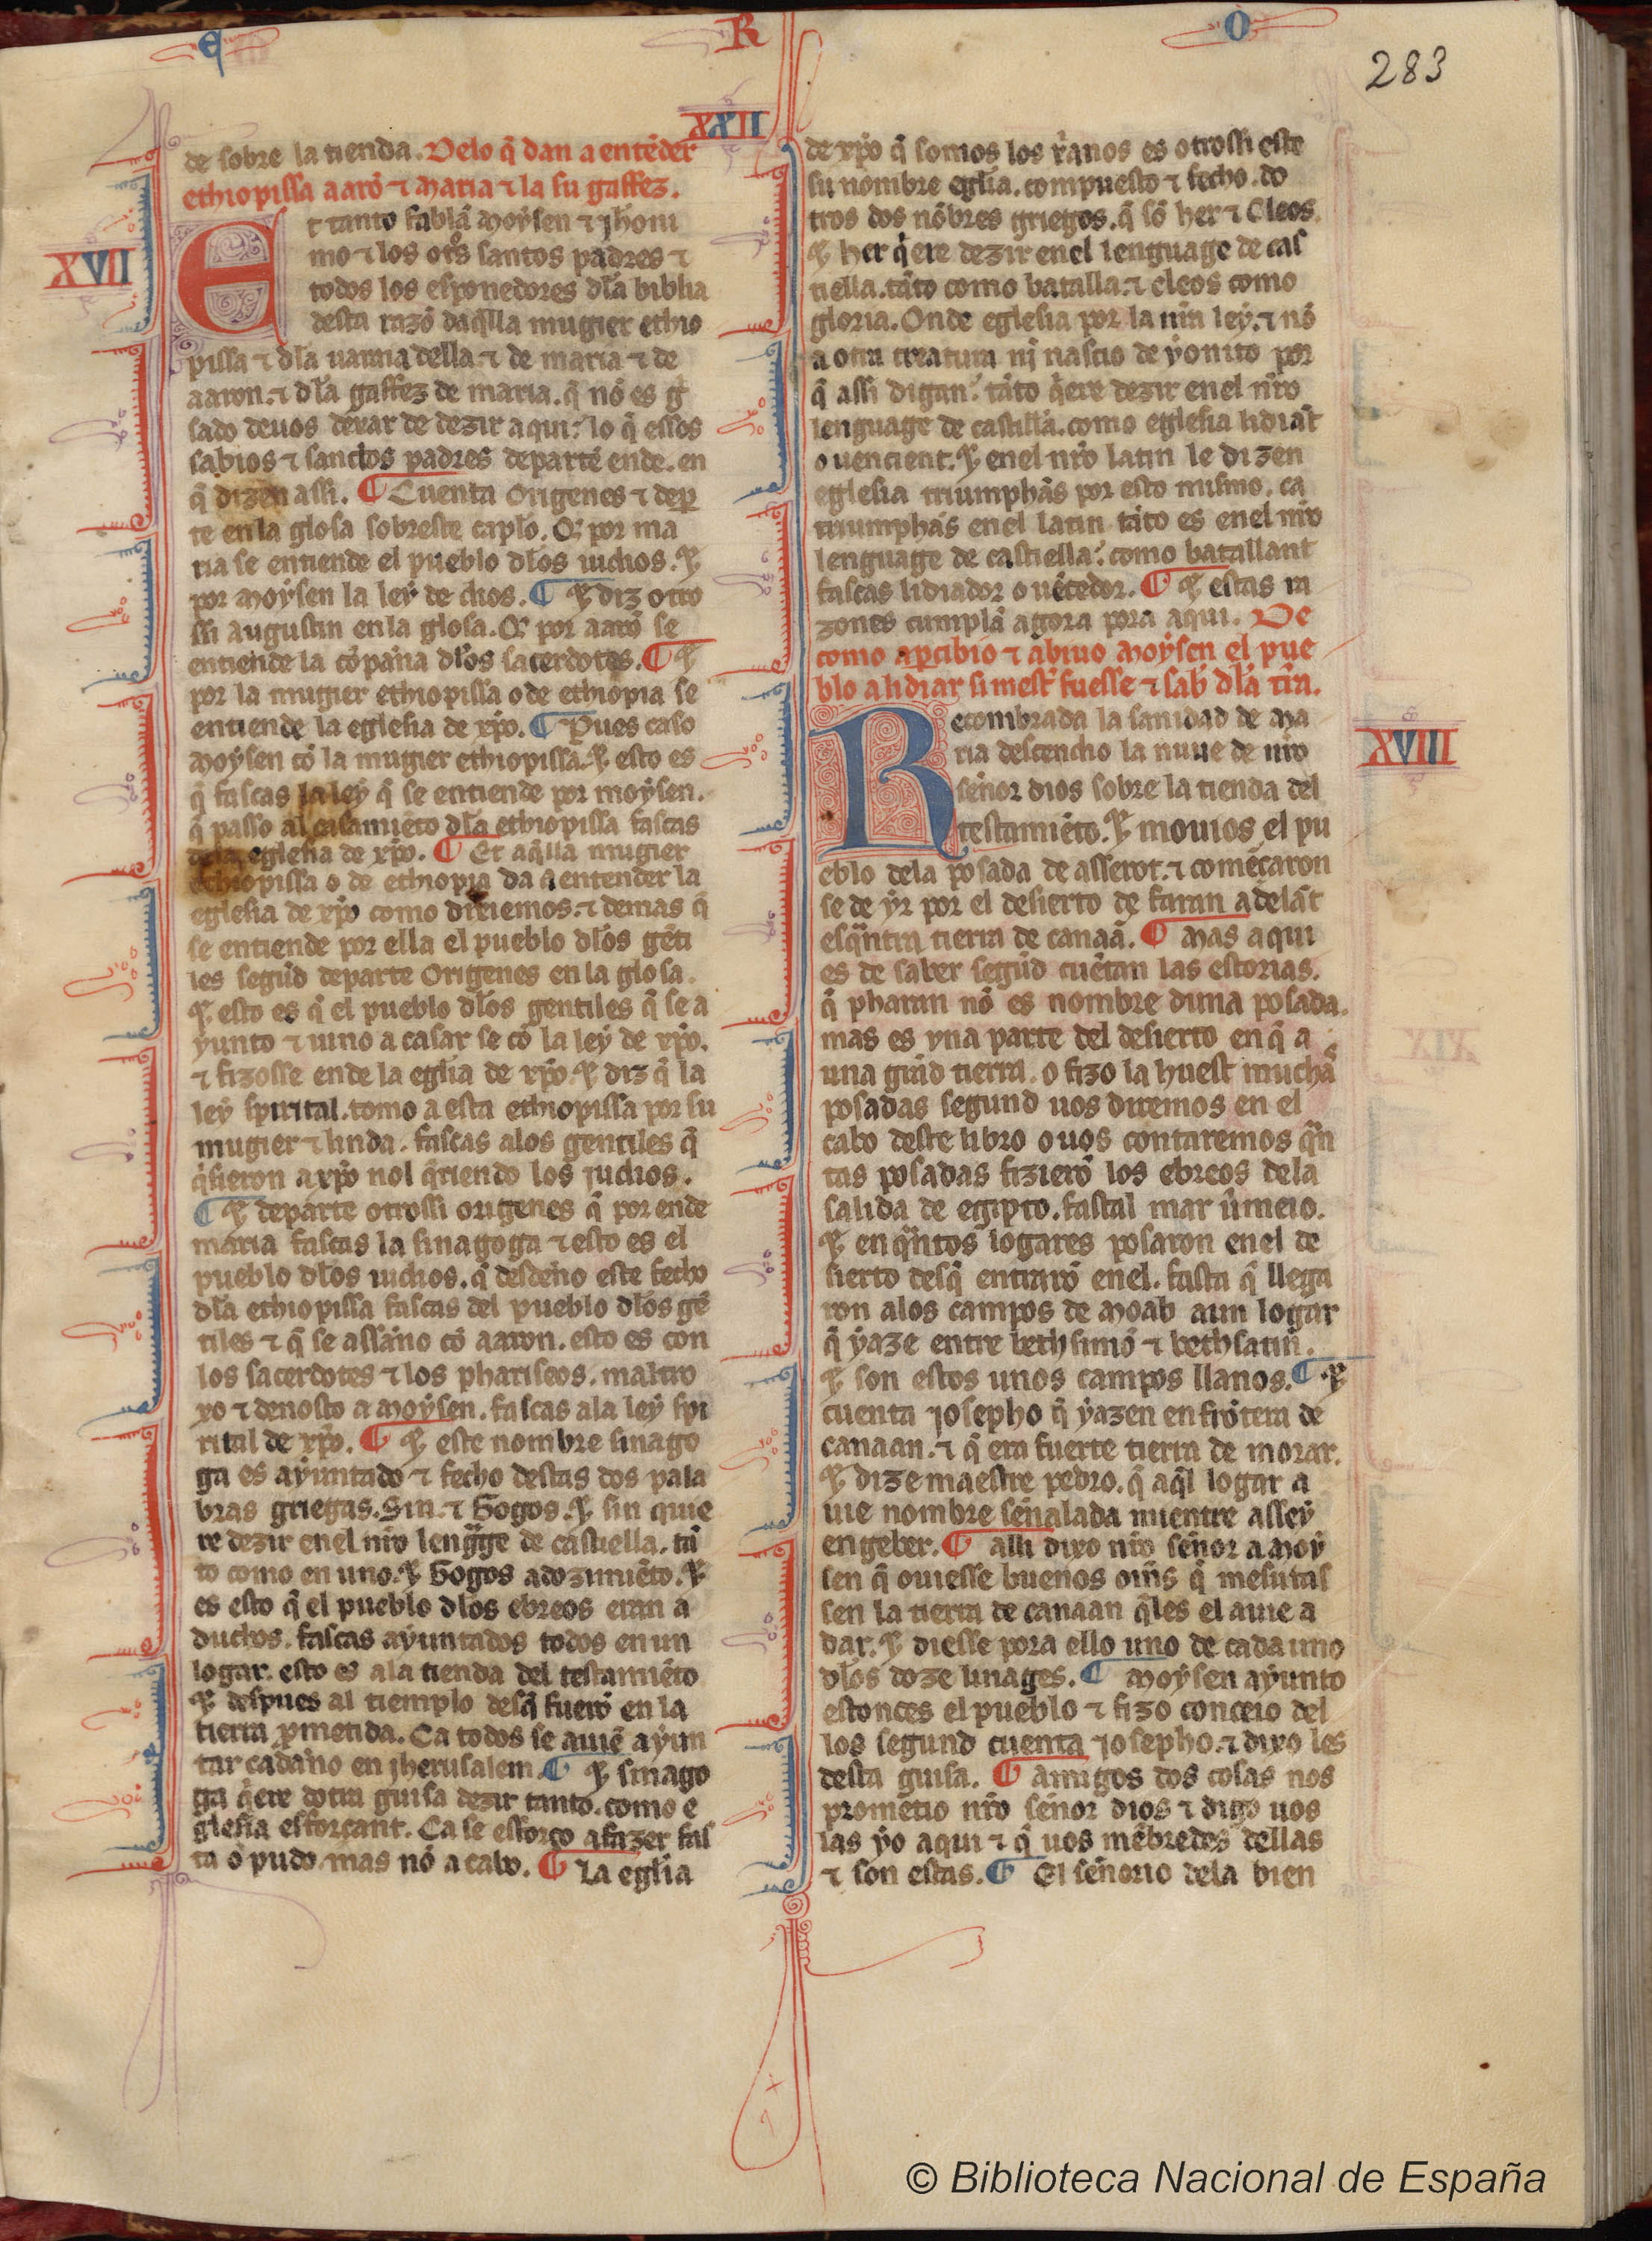 E R O
283
XXII
de sobre la tienda. Delo q̃ dan a entẽder
ethiopissa aarõ ⁊ Maria ⁊ la su gaffez.
XVII
Et tanto fablã Moysen ⁊ jheroni
mo ⁊ los otros santos padres ⁊
todos los esponedores dla biblia
desta razõ daq̃lla mugier ethio
pissa ⁊ dla uamia della ⁊ de maria ⁊ de
aaron. ⁊ dla gaffez de maria. q̃ nõ es gi
sado deuos dexar de dezir aqui: lo q̃ essos
sabios ⁊ sanctos padres departẽ ende. en
q̃ dizen assi. ¶ Cuenta Origenes ⁊ depar
te en la glosa sobreste capło. Q̃ por ma
ria se entiende el pueblo dlos iudios. ⁊
por Moysen la ley de dios. ¶ ⁊ diz otro
ssi augustin en la glosa. Q̃ por aarõ se
entiende la cõpãna dlos sacerdotes. ¶ ⁊
por la mugier ethiopissa o de ethiopia se
entiende la eglesia de xp̃o. ¶ Pues caso
Moysen cõ la mugier ethiopissa. ⁊ esto es
q̃ fascas la ley q̃ se entiende por moysen.
q̃ passo al casamiẽto dla ethiopissa fascas
dela eglesia de xp̃o. ¶ Et aq̃lla mugier
ethiopissa o de ethiopia da a entender la
eglesia de xp̃o como diziemos. ⁊ demas q̃
se entiende por ella el pueblo dlos gẽti
les segũd departe Origenes en la glosa.
⁊ esto es q̃ el pueblo dlos gentiles q̃ se a
yunto ⁊ uino a casar se cõ la ley de xp̃o.
⁊ fizosse ende la egl̃ia de xp̃o. ⁊ diz q̃ la
ley spirital. tomo a esta ethiopissa por su
mugier ⁊ linda. fascas alos gentiles q̃
q̃sieron a xp̃o nol q̃riendo los judios.
¶ ⁊ departe otrossi origenes q̃ por ende
maria fascas la sinagoga ⁊ esto es el
pueblo dlos iudios. q̃ desdeño este fecho
dla ethiopissa fascas del pueblo dlos gẽ
tiles ⁊ q̃ se assãno cõ aaron. esto es con
los sacerdotes ⁊ los phariseos. maltro
xo ⁊ denosto a Moysen. fascas ala ley spi
rital de xp̃o. ¶ ⁊ este nombre sinago
ga es ayuntado ⁊ fecho destas dos pala
bras griegas. Sin. ⁊ Gogos. ⁊ sin quie
re dezir en el nr̃o lenguage de castiella. tã
to como en uno. ⁊ Gogos adozimiẽto. ⁊
es esto q̃ el pueblo dlos ebreos eran a
duchos. fascas ayuntados todos en un
logar. esto es ala tienda del testamiẽto
⁊ despues al tiemplo desq̃ fuerõ en la
tierra ꝓmetida. Ca todos se auiẽ ayun
tar cadaño en jherusalem. ¶ ⁊ sinago
ga q̃ere dotra guisa dezir tanto. como e
glesia esforçant. Ca se esforço a fazer fas
ta o pudo. mas nõ a cabo. ¶ La egl̃ia
de xp̃o q̃ somos los xr̃anos es otrossi este
su nombre egl̃ia. compuesto ⁊ fecho. do
tros dos nõbres griegos. q̃ sõ her ⁊ Cleos.
⁊ her q̃ere dezir en el lenguage de cas
tiella. tãto como batalla. ⁊ cleos como
gloria. Onde eglesia por la nr̃a ley. ⁊ nõ
a otra creatura nj̃ nascio de yonito por
q̃ assi digan: tãto q̃ere dezir en el nr̃o
lenguage de castilla. como eglesia lidiãt
o uencient. ⁊ en el nr̃o latin le dizen
eglesia triumphãs por esto mismo. ca
triumphãs en el latin tãto es en el nr̃o
lenguage de castiella: como batallant
fascas lidiador o uẽcedor. ¶ ⁊ estas ra
zones cumplã agora pora aqui. De
como apercibio ⁊ abiuo Moysen el pue
blo a lidiar si mest̃ fuesse ⁊ sab̃ dla tr̃a.
XVIII
Recombrada la sanidad de Ma
ria descendio la nuue de nr̃o
señor dios sobre la tienda del
testamiẽto. ⁊ mouios el pu
eblo dela posada de asserot. ⁊ comẽçaron
se de yr por el desierto de faran adelãt
esq̃ntra tierra de canaã. ¶ Mas aqui
es de saber segũd cuẽtan las estorias.
q̃ pharan nõ es nombre duna posada.
mas es vna parte del desierto en q̃ a
una grãd tierra. o fizo la huest muchã
posadas segund uos diremos en el
cabo deste libro o uos contaremos q̃n
tas posadas fizierõ los ebreos dela
salida de egipto. fastal mar ũmeio.
⁊ en q̃ntos logares posaron en el de
sierto desq̃ entrarõ en el. fasta q̃ llega
ron alos campos de Moab a un logar
q̃ yaze entre bethsimõ ⁊ bethsatin.
⁊ son estos unos campos llanos. ¶ ⁊
cuenta Josepho q̃ yazen en frõtera de
canaan. ⁊ q̃ era fuerte tierra de morar.
⁊ dize maestre pedro. q̃ aq̃l logar a
uie nombre señalada mientre assey
engeber. ¶ alli dixo nr̃o señor a Moy
sen q̃ ouiesse buenos om̃s q̃ mesuras
sen la tierra de canaan q̃les el auie a
dar. ⁊ diesse pora ello uno de cada uno
dlos doze linages. ¶ Moysen ayunto
estonces el pueblo ⁊ fizo conceio del
los segund cuenta Josepho. ⁊ dixo les
desta guisa. ¶ Amigos dos cosas nos
prometio nr̃o señor dios ⁊ digo uos
las yo aqui ⁊ q̃ uos mẽbredes dellas
⁊ son estas. ¶ El señorio dela bien
© Biblioteca Nacional de España